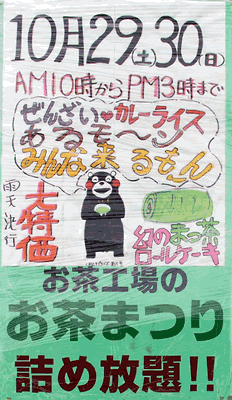 10月29(土)30(日)
AM10時からPM3時まで
ぜんざい♥カレーライス
あるモ〜ン
みんな来るもん
雨天決行
大特価
幻のまっ茶
ロールケーキ
お茶工場の
お茶まつり
詰め放題!!